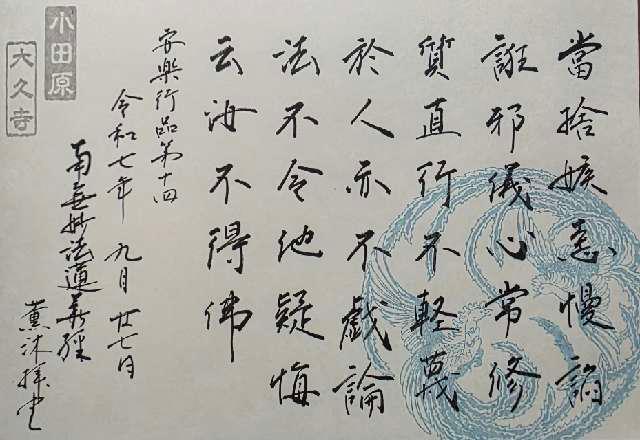 當捨嫉恚慢諂
誑邪儀心常修
質直行不軽蔑
於人亦不戯論
法不令他疑悔
云汝不得佛
安樂行品第十四
令和七年 九月 廿七日
南無妙法蓮華経
薫沐拝書
小田原
大久寺